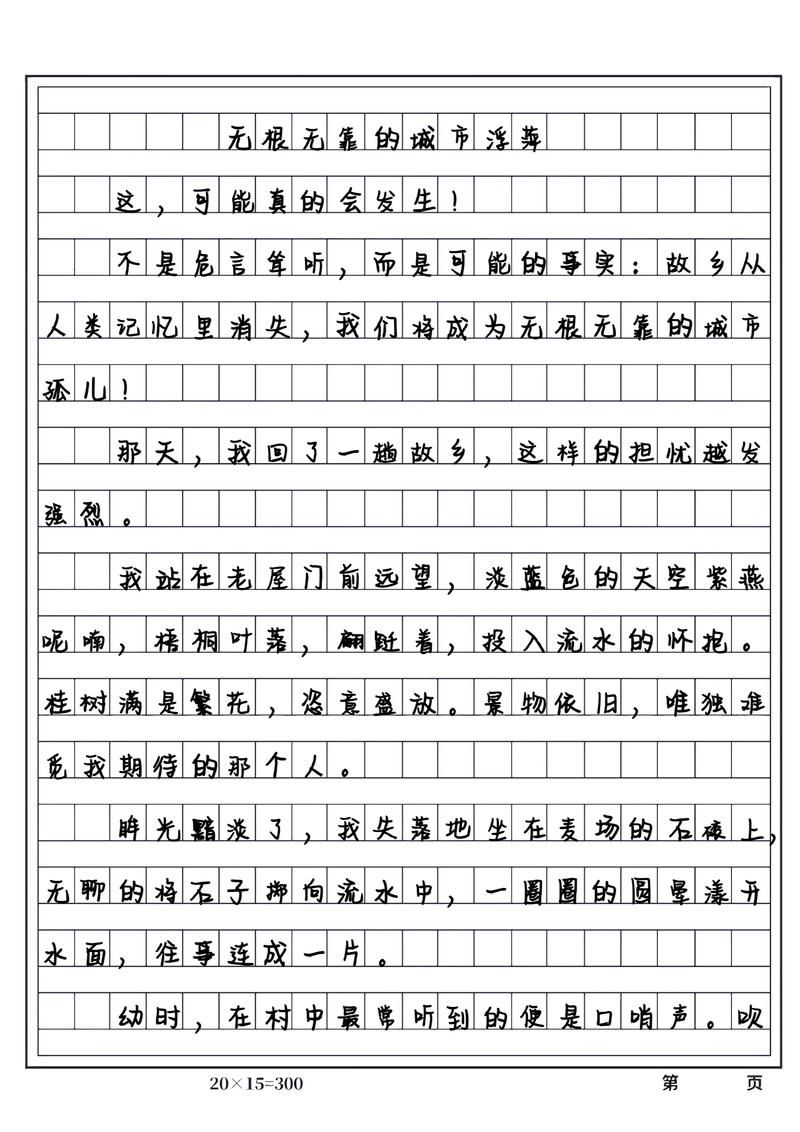 无根无靠的城市浮萍
这，可能真的会发生！
不是危言耸听，而是可能的事实：故乡从
人类记忆里消失，我们将成为无根无靠的城市
孤儿！
那天，我回了一趟故乡，这样的担忧越发
强烈。
我站在老屋门前远望，淡蓝色的天空紫燕
呢喃，梧桐叶落，翩跹着，投入流水的怀抱。
桂树满是繁花，恣意盛放。景物依旧，唯独难
觅我期待的那个人。
眸光黯淡了，我失落地坐在麦场的石磙上，
无聊的将石子掷向流水中，一圈圈的圆晕漾开
水面，往事连成一片。
幼时，在村中最常听到的便是口哨声。吹
20×15=300
第 页